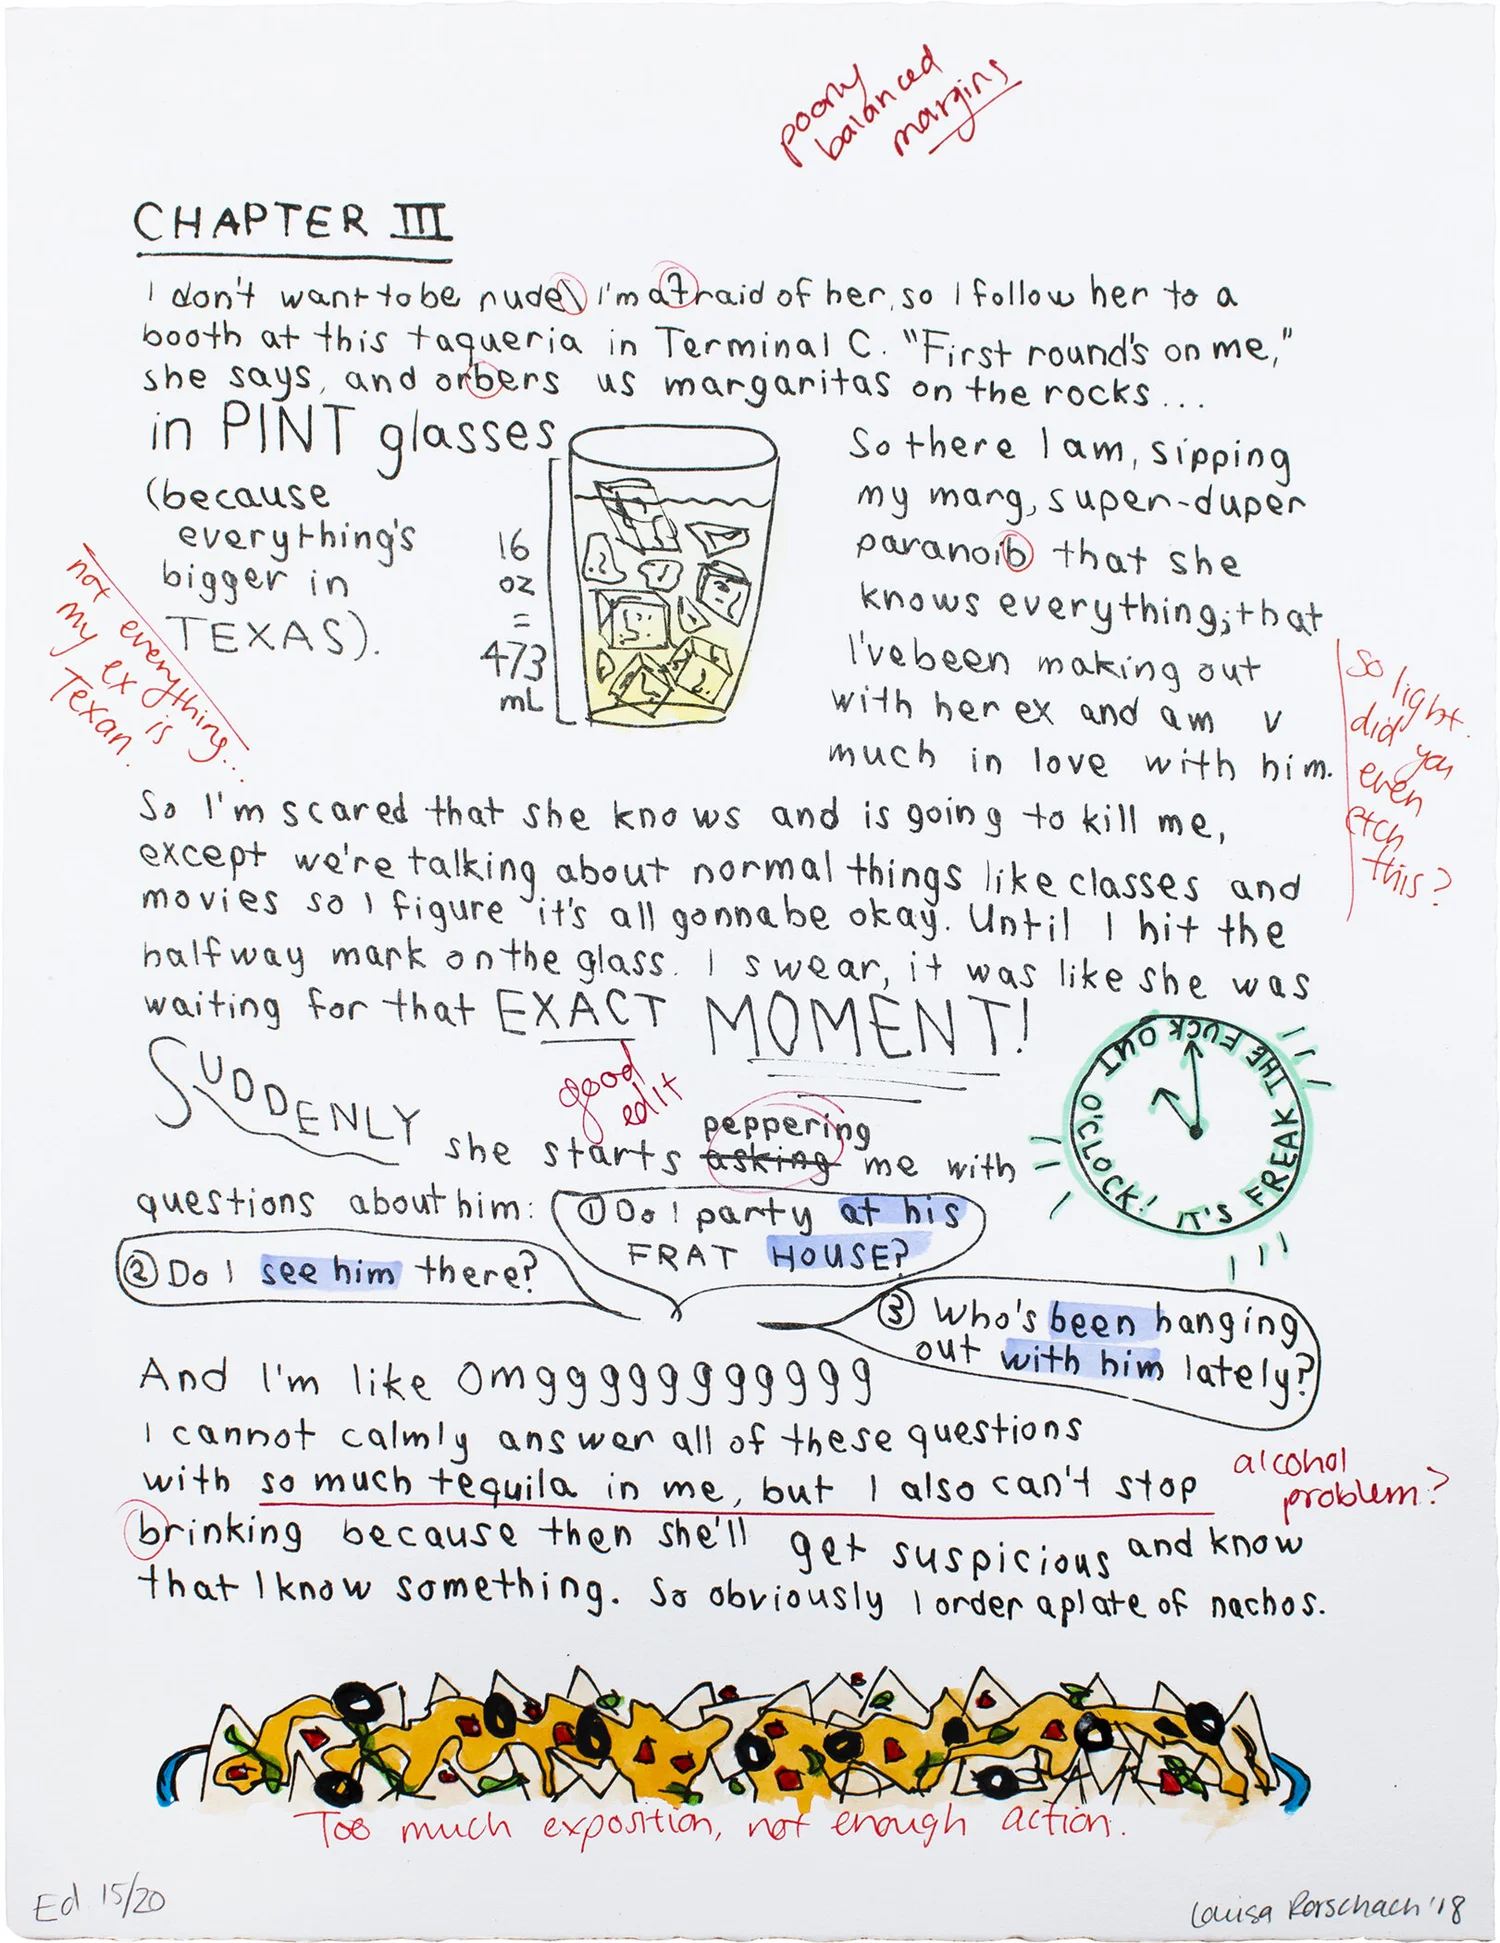 poorly
balanced
margins
CHAPTER III
I don't want to be nude\ I'm afraid of her, so I follow her to a
booth at this taqueria in Terminal C. "First round's on me,"
she says, and orbers us margaritas on the rocks...
in PINT glasses
(because
everything's
bigger in
TEXAS).
not everything...
my ex is
Texan.
16
oz
=
473
mL
So there I am, sipping
my marg, super-duper
paranoib that she
knows everything; that
I've been making out
with her ex and am v
much in love with him.
so light.
did you
even
etch
this?
So I'm scared that she knows and is going to kill me,
except we're talking about normal things like classes and
movies so I figure it's all gonna be okay. Until I hit the
halfway mark on the glass. I swear, it was like she was
waiting for that EXACT MOMENT!
IT'S FREAK THE FUCK OUT O'CLOCK!
good
edit
peppering
SUDDENLY she starts asking me with
questions about him: ① Do I party at his
FRAT HOUSE?
② Do I see him there?
③ Who's been hanging
out with him lately?
And I'm like Omggggggggggg
I cannot calmly answer all of these questions
with so much tequila in me, but I also can't stop
alcohol
problem?
brinking because then she'll get suspicious and know
that I know something. So obviously I order a plate of nachos.
Too much exposition, not enough action.
Ed 15/20
Louisa Rorschach '18